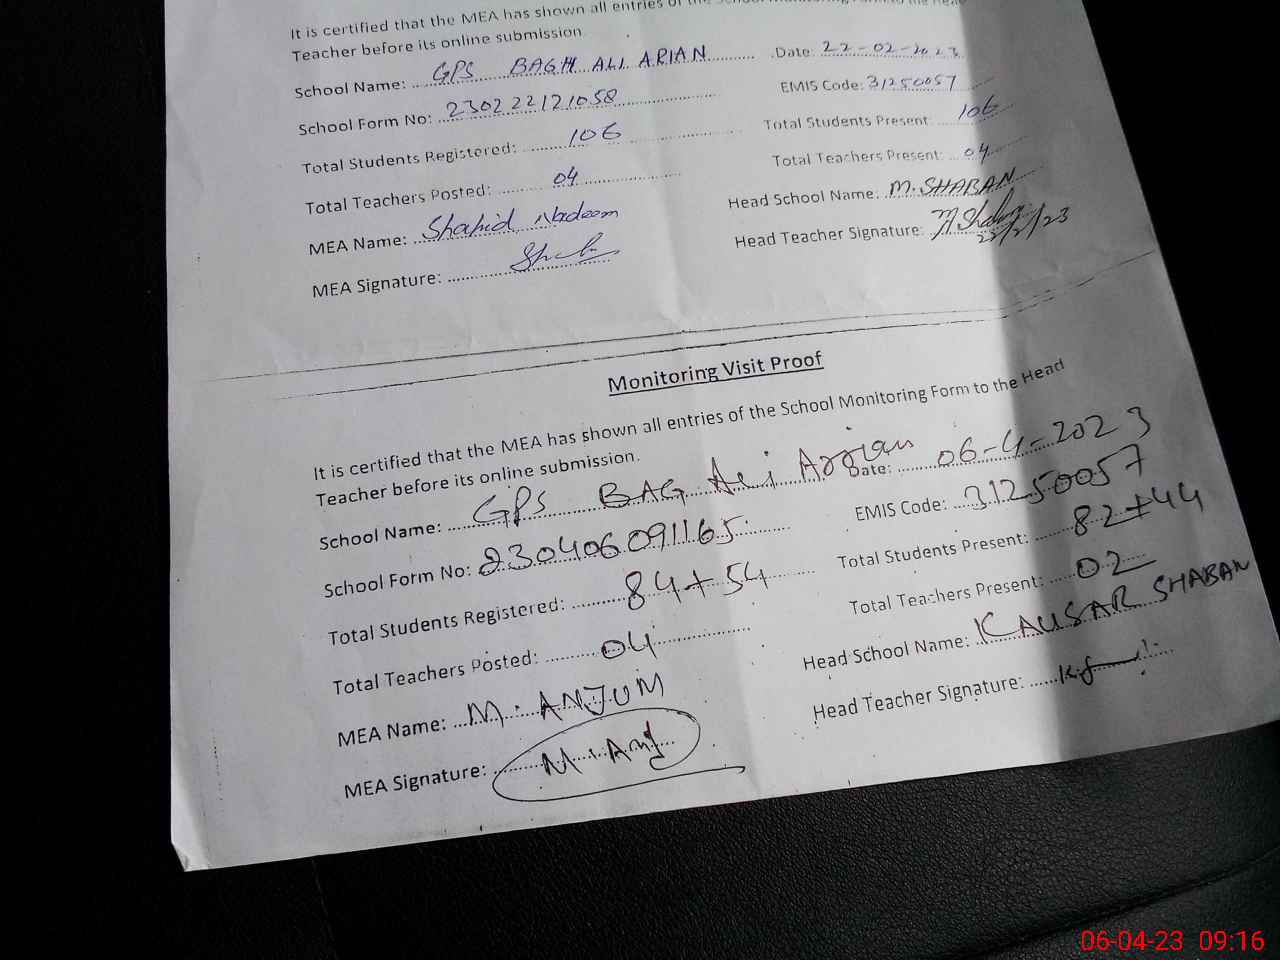 It is certified that the MEA has shown all entries of the School Monitoring Form to the Head
Teacher before its online submission.
School Name: GPS BAGH ALI ARIAN Date: 22-02-2023
School Form No: 230222121058 EMIS Code: 31250057
Total Students Registered: 106 Total Students Present: 106
Total Teachers Posted: 04 Total Teachers Present: 04
MEA Name: Shahid Nadeem Head School Name: M. SHABAN
MEA Signature: Head Teacher Signature: M Shaban 22/2/23
Monitoring Visit Proof
It is certified that the MEA has shown all entries of the School Monitoring Form to the Head
Teacher before its online submission.
School Name: GPS BAG Ali Arian Date: 06-4-2023
School Form No: 230406091165 EMIS Code: 31250057
Total Students Registered: 84+54 Total Students Present: 82+44
Total Teachers Posted: 04 Total Teachers Present: 02
MEA Name: M. ANJUM Head School Name: KAUSAR SHABAN
MEA Signature: M. Anj Head Teacher Signature:
06-04-23 09:16